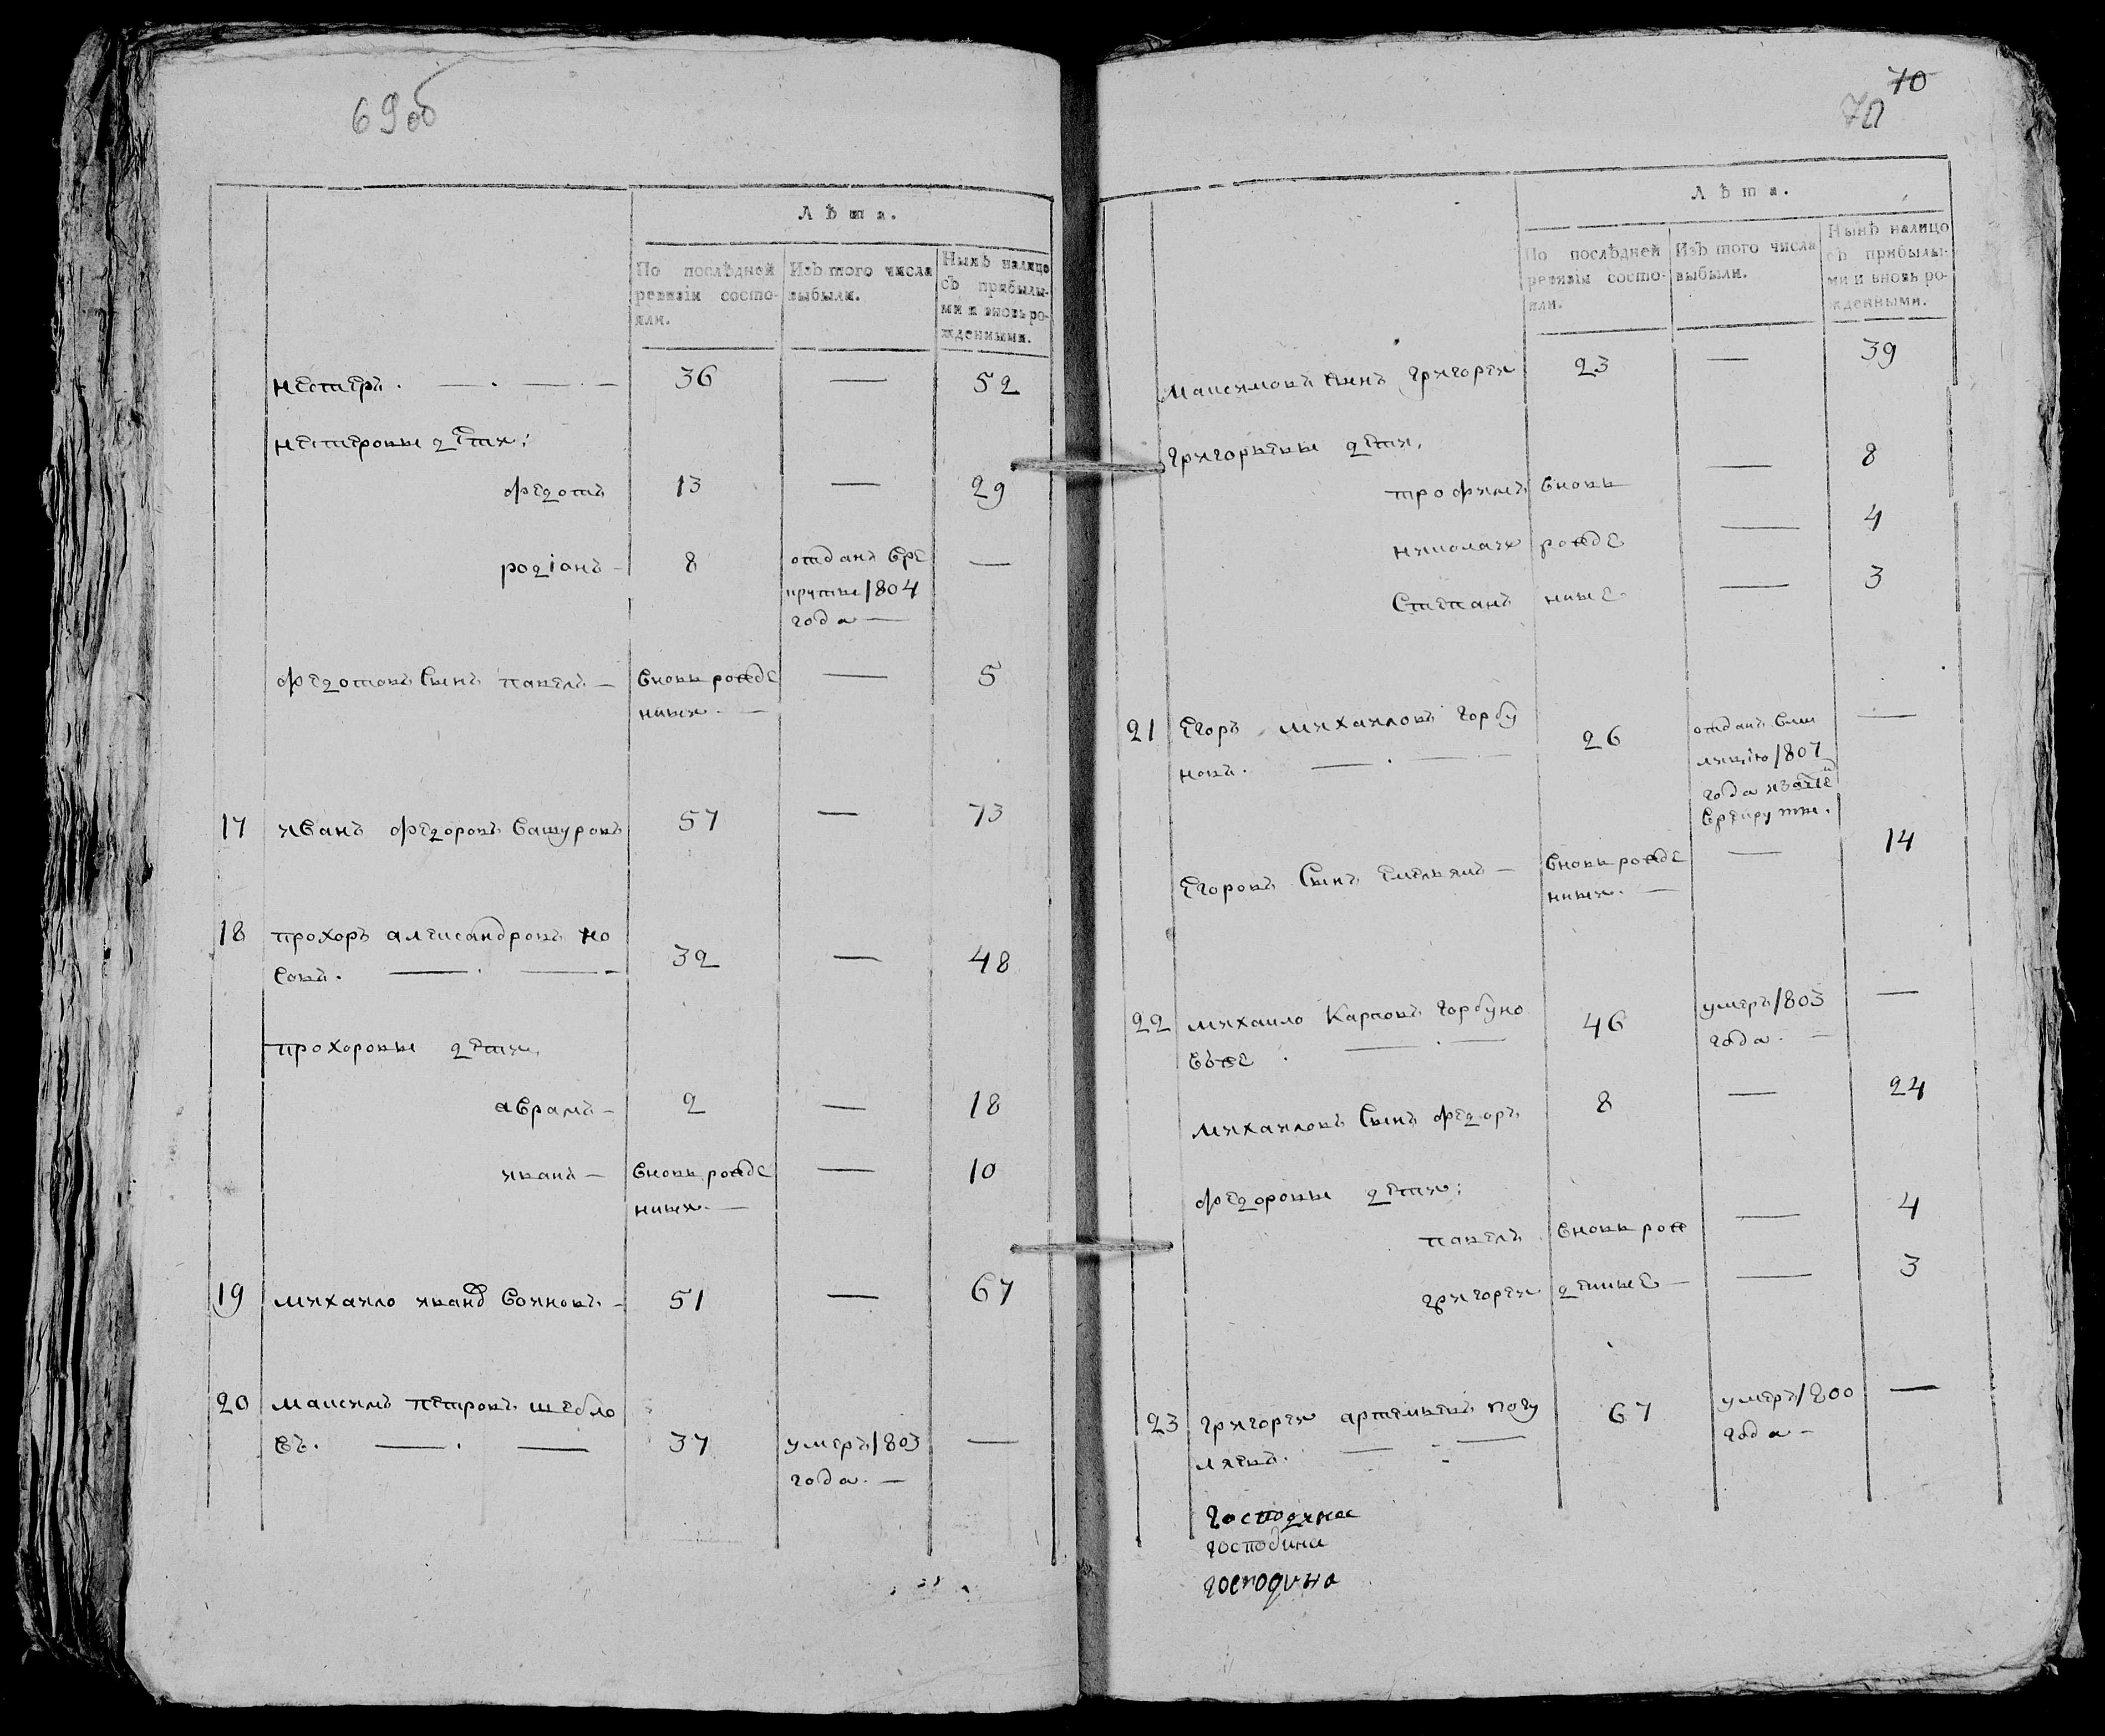 69об
Лѣта.
По послѣдней ревизіи состояли.
Изъ того числа выбыли.
Нынѣ налицо съ прибылыми и вновь рожденными.
нестеръ. — . — . — 36 — 52
нестеровы дети:
федотъ 13 — 29
родіонъ — 8 отданъ вре —
круты 1804
года —
федотовъ сынъ павелъ — вновь рожде — 5
нныи. —
17 иванъ федоровъ вашуровъ 57 — 73
18 прохоръ александровъ но
совъ. — . — 32 — 48
прохоровы дети,
аврамъ — 2 — 18
иванъ — вновь рожде — 10
нныи. —
19 михаило иванд воиновъ — 51 — 67
20 максимъ петровъ шебло
въ. — . — 37 умеръ 1803 —
года. —
70
70
Лѣта.
По послѣдней ревизіи состояли.
Изъ того числа выбыли.
Нынѣ налицо съ прибылыми и вновь рожденными.
максимовъ сынъ григореи 23 — 39
григорьевы дети,
трофимъ вновь — 8
николаи рожде — 4
степанъ нные — 3
21 егоръ михаиловъ горбу
новъ. — . — 26 отданъ вми —
лицію 1807
года изаче
врекруты.
егоровъ сынъ емельянъ — вновь рожде — 14
нныи. —
22 михаило карповъ горбуно 46 умеръ 1803 —
въже . — . — года. —
михаиловъ сынъ федоръ 8 — 24
федоровы дети:
павелъ вновь рож — 4
григореи денные — — 3
23 григореи артемьевъ погу 67 умеръ 1800 —
ляевъ. — . — года —
господина
господина
господина